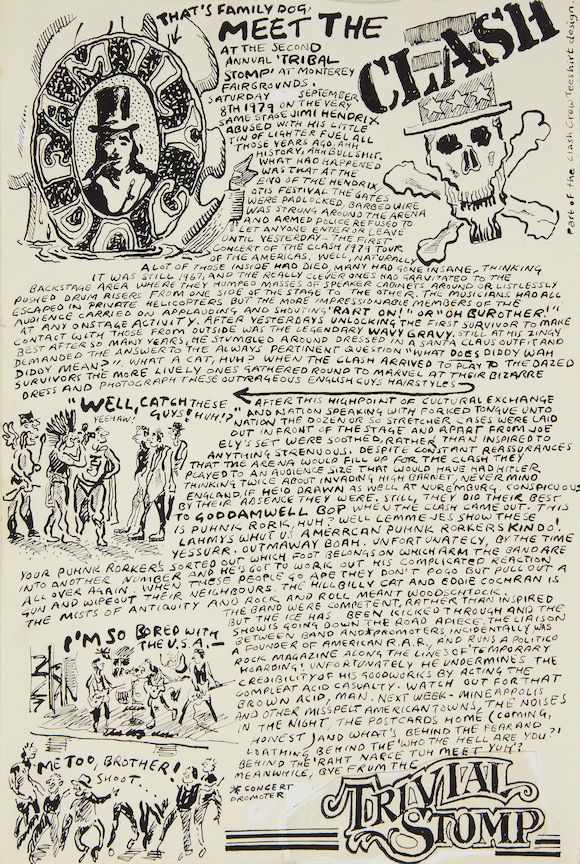 THAT'S FAMILY DOG,
MEET THE
CLASH
FAMILY DOG
AT THE SECOND
ANNUAL 'TRIBAL
STOMP' AT MONTEREY
FAIRGROUNDS.
SATURDAY SEPTEMBER
8TH 1979 ON THE VERY
SAME STAGE JIMI HENDRIX
ABUSED WITH HIS LITTLE
TIN OF LIGHTER FUEL ALL
THOSE YEARS AGO. AHH
HISTORY, AHH BULLSHIT.
WHAT HAD HAPPENED
WAS THAT AT THE
END OF THE HENDRIX
OTIS FESTIVAL THE GATES
WERE PADLOCKED, BARBED WIRE
WAS STRUNG AROUND THE ARENA
AND ARMED POLICE REFUSED TO
LET ANYONE ENTER OR LEAVE
UNTIL YESTERDAY - THE FIRST
CONCERT OF THE CLASH 1979 TOUR
OF THE AMERICAS. WELL, NATURALLY
A LOT OF THOSE INSIDE HAD DIED, MANY HAD GONE INSANE, THINKING
IT WAS STILL 1967, AND THE REALLY CLEVER ONES HAD GRAVITATED TO THE
BACKSTAGE AREA WHERE THEY HUMPED MASSES OF SPEAKER CABINETS AROUND OR LISTLESSLY
PUSHED DRUM RISERS FROM ONE SIDE OF THE STAGE TO THE OTHER. THE MUSICIANS HAD ALL
ESCAPED IN PRIVATE HELICOPTERS BUT THE MORE IMPRESSIONABLE MEMBERS OF THE
AUDIENCE CARRIED ON APPLAUDING AND SHOUTING "RAHT ON!" OR "OH BUROTHER!"
AT ANY ONSTAGE ACTIVITY. AFTER YESTERDAYS UNLOCKING THE FIRST SURVIVOR TO MAKE
CONTACT WITH THOSE FROM OUTSIDE WAS THE LEGENDARY WAVY GRAVY. STILL AT HIS ZINGY
BEST AFTER SO MANY YEARS, HE STUMBLED AROUND DRESSED IN A SANTA CLAUS OUTFIT AND
DEMANDED THE ANSWER TO THE ALWAYS PERTINENT QUESTION "WHAT DOES DIDDY WAH
DIDDY MEAN?". WHAT A CAT, HUH? WHEN THE CLASH ARRIVED TO PLAY TO THE DAZED
SURVIVORS THE MORE LIVELY ONES GATHERED ROUND TO MARVEL AT THEIR BIZARRE
DRESS AND PHOTOGRAPH THESE OUTRAGEOUS ENGLISH GUYS HAIRSTYLES
"WELL, CATCH THESE
GUYS! HUH!?"
YEEHAW!
AFTER THIS HIGHPOINT OF CULTURAL EXCHANGE
AND NATION SPEAKING WITH FORKED TONGUE UNTO
NATION THE DOZEN OR SO STRETCHER CASES WERE LAID
OUT IN FRONT OF THE STAGE AND APART FROM JOE
ELY'S SET WERE SOOTHED, RATHER THAN INSPIRED TO
ANYTHING STRENUOUS. DESPITE CONSTANT REASSURANCES
THAT THE ARENA WOULD FILL UP FOR THE CLASH THEY
PLAYED TO AN AUDIENCE SIZE THAT WOULD HAVE HAD HITLER
THINKING TWICE ABOUT INVADING HIGH BARNET, NEVERMIND
ENGLAND, IF HE'D DRAWN AS WELL AT NUREMBURG. CONSPICUOUS
BY THEIR ABSENCE THEY WERE. STILL, THEY DID THEIR BEST
TO GODDAMWELL BOP WHEN THE CLASH CAME OUT. THIS
IS PUHNK RORK, HUH? WELL LEMME JES SHOW THESE
LAHMYS WHUT US AMERRCAN PUHNK RORKERS KIN DO!
YESSURR. OUTMAWAY BOAH. UNFORTUNATELY, BY THE TIME
YOUR PUHNK RORKER'S SORTED OUT WHICH FOOT BELONGS ON WHICH ARM THE BAND ARE
INTO ANOTHER NUMBER AND HE'S GOT TO WORK OUT HIS COMPLICATED REACTION
ALL OVER AGAIN. WHEN THESE PEOPLE GO APE THEY DON'T POGO BUT PULL OUT A
GUN AND WIPEOUT THEIR NEIGHBOURS. THE HILLBILLY CAT AND EDDIE COCHRAN IS
THE MISTS OF ANTIQUITY AND ROCK AND ROLL MEANT WOODSCHTOCK.
I'M SO BORED WITH
THE U.S.A. -
THE BAND WERE COMPETENT, RATHER THAN INSPIRED
BUT THE ICE HAS BEEN KICKED THROUGH AND THE
SHOW IS GOING DOWN THE ROAD APIECE. THE LIAISON
BETWEEN BAND AND *PROMOTERS, INCIDENTALLY WAS
A FOUNDER OF AMERICAN R.A.R., AND RUNS A POLITICO
ROCK MAGAZINE ALONG THE LINES OF 'TEMPORARY
HOARDING'. UNFORTUNATELY HE UNDERMINES THE
CREDIBILITY OF HIS GOODWORKS BY ACTING THE
COMPLEAT ACID CASUALTY. WATCH OUT FOR THAT
BROWN ACID, MAN. NEXT WEEK - MINEAPPOLIS
AND OTHER MISSPELT AMERICAN TOWNS, THE NOISES
IN THE NIGHT, THE POSTCARDS HOME (COMING,
HONEST) AND WHAT'S BEHIND THE FEAR AND
LOATHING BEHIND THE 'WHO THE HELL ARE YOU?!'
BEHIND THE 'RAHT NARCE TUH MEET YUH'?
MEANWHILE, BYE FRUM THE
ME TOO, BROTHER!
SHOOT...
* CONCERT
PROMOTER
TRIVIAL
STOMP
Part of the Clash Crew Teeshirt design.